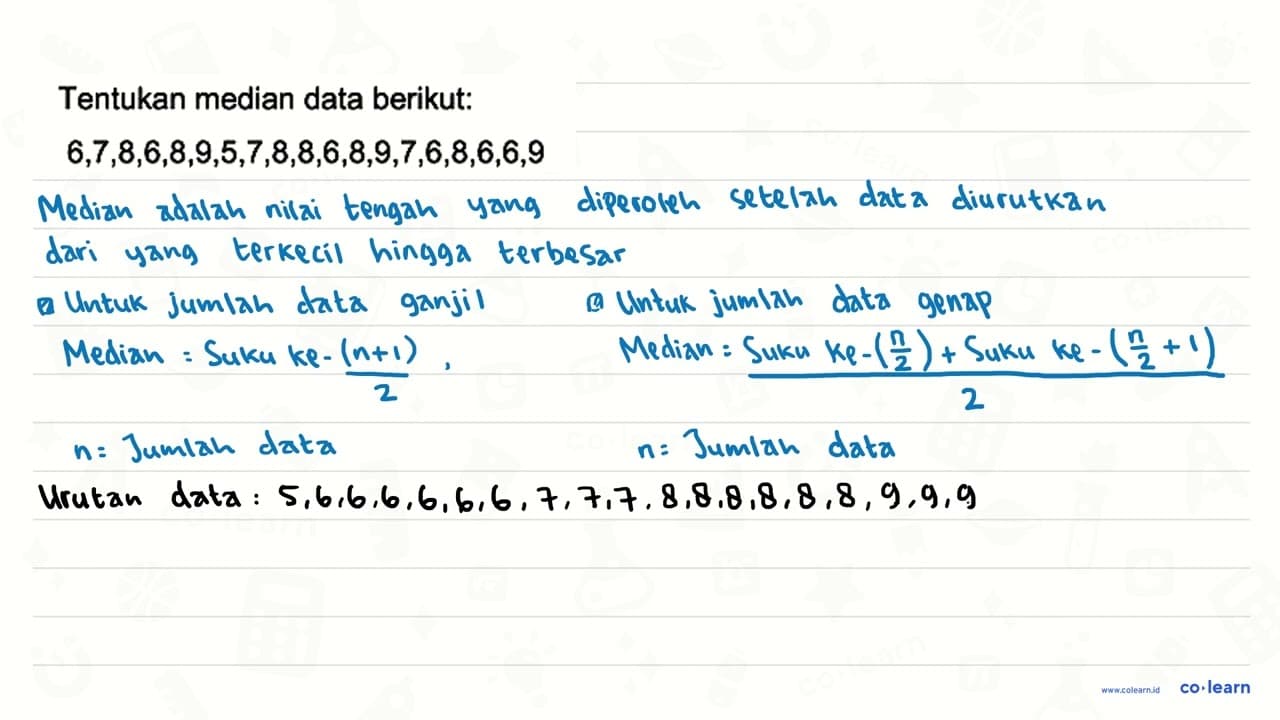 Tentukan median data berikut:
6,7,8,6,8,9,5,7,8,8,6,8,9,7,6,8,6,6,9
Median adalah nilai tengah yang diperoleh setelah data diurutkan
dari yang terkecil hingga terbesar
Untuk jumlah data ganjil
Median = Suku ke-(n+1)/2,
n = Jumlah data
Untuk jumlah data genap
Median = Suku ke-(n/2) + Suku ke-(n/2 + 1)
2
n = Jumlah data
Urutan data : 5,6,6,6,6,6,6,7,7,7,8,8,8,8,8,8,9,9,9
www.colearn.id co·learn